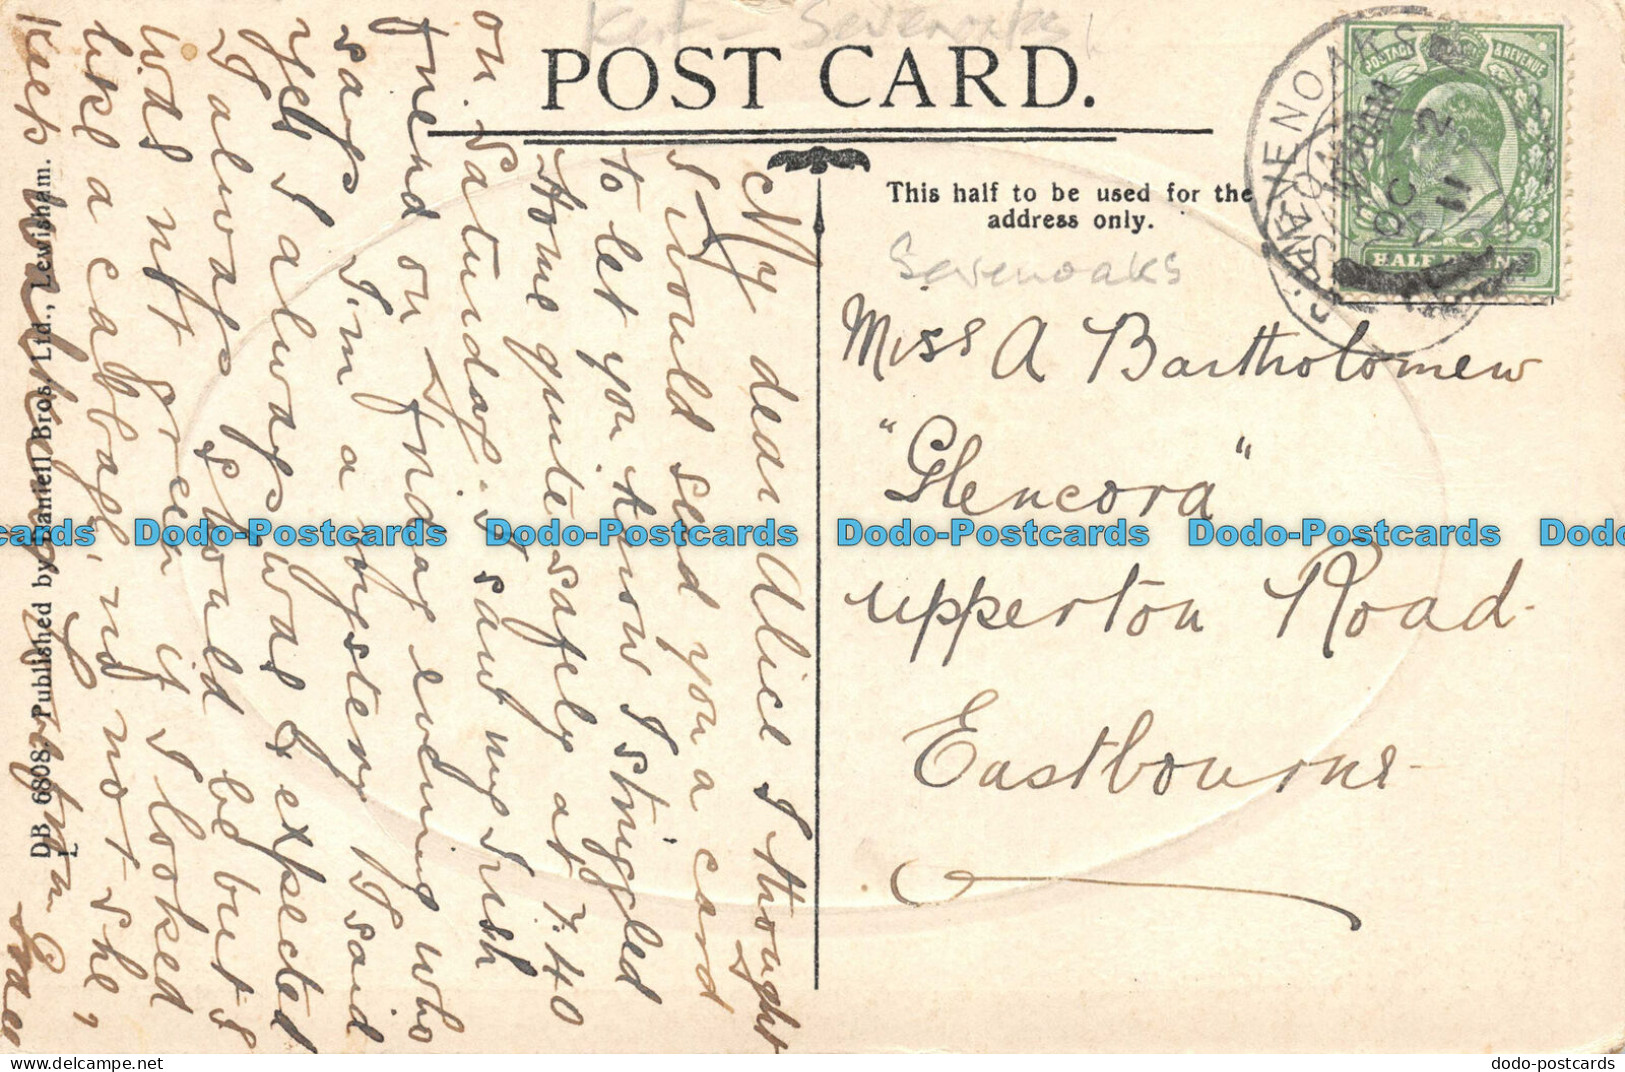 Kent - Sevenoaks
POST CARD.
This half to be used for the
address only.
Sevenoaks
SEVENOAKS
OC 2
11
POSTAGE & REVENUE
HALF PENNY
Miss A Bartholomew
"Glencora"
Upperton Road
Eastbourne
My dear Alice I thought
I would send you a card
to let you know I struggled
Home quite safely at 7.40
on Saturday. I saw my Irish
friend on Friday evening who
says I'm a mystery I said
yes I always was & expected
I always should be but I
was not green if I looked
like a cabbage, not she,
Grace
DB 6808. Published by Daniell Bros. Ltd., Lewisham.
Dodo-Postcards Dodo-Postcards Dodo-Postcards Dodo-Postcards
dodo-postcards